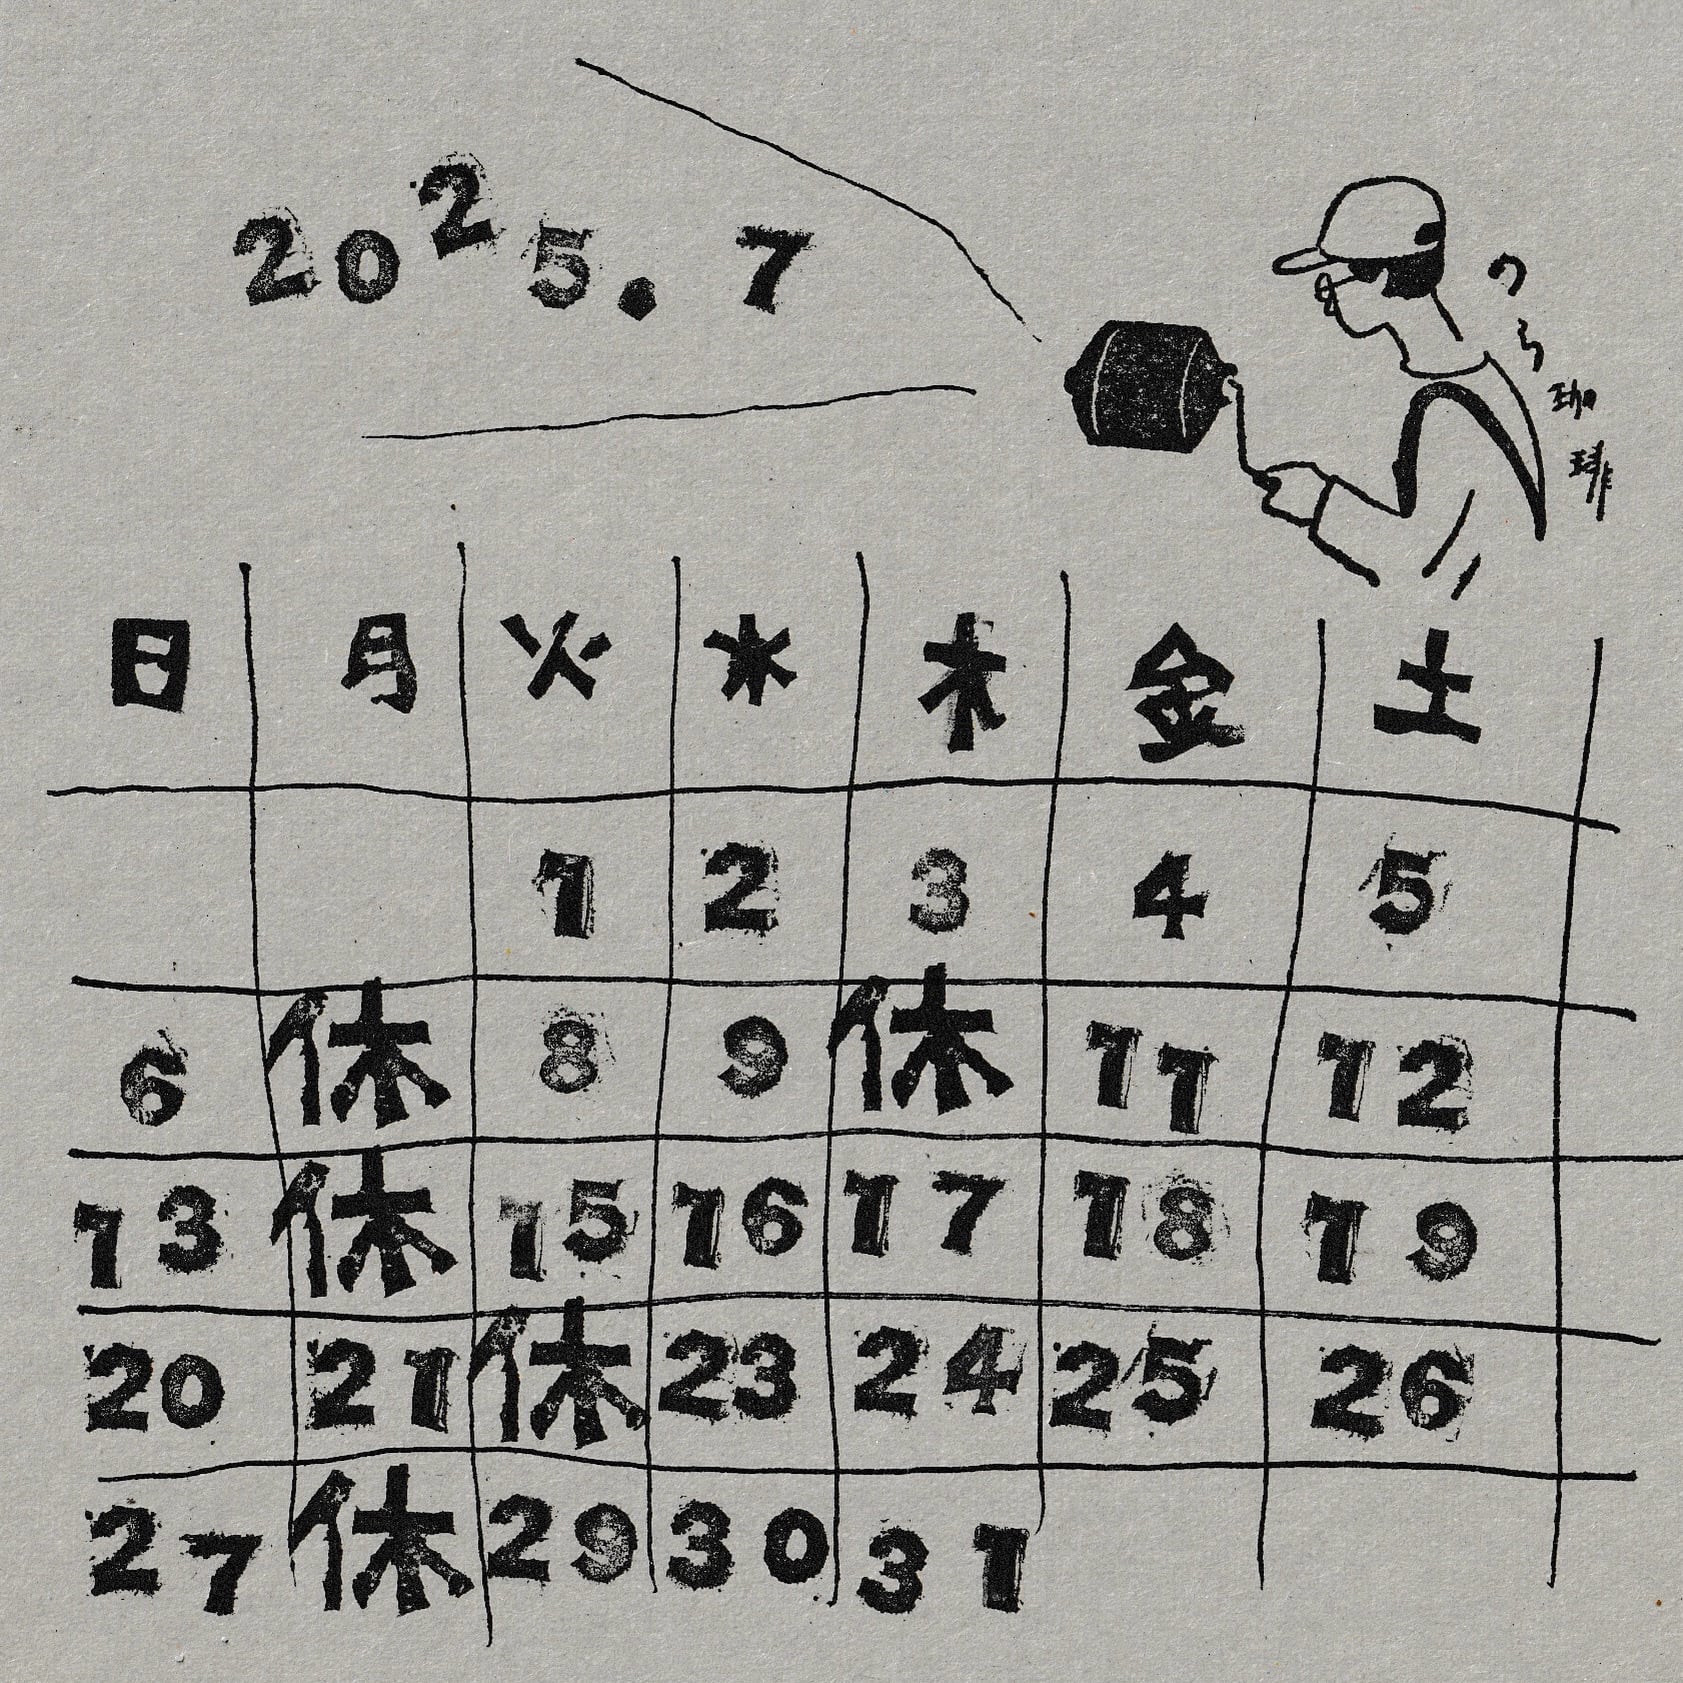 2025.7
のら珈琲
日 月 火 水 木 金 土
1 2 3 4 5
6 休 8 9 休 11 12
13 休 15 16 17 18 19
20 21 休 23 24 25 26
27 休 29 30 31